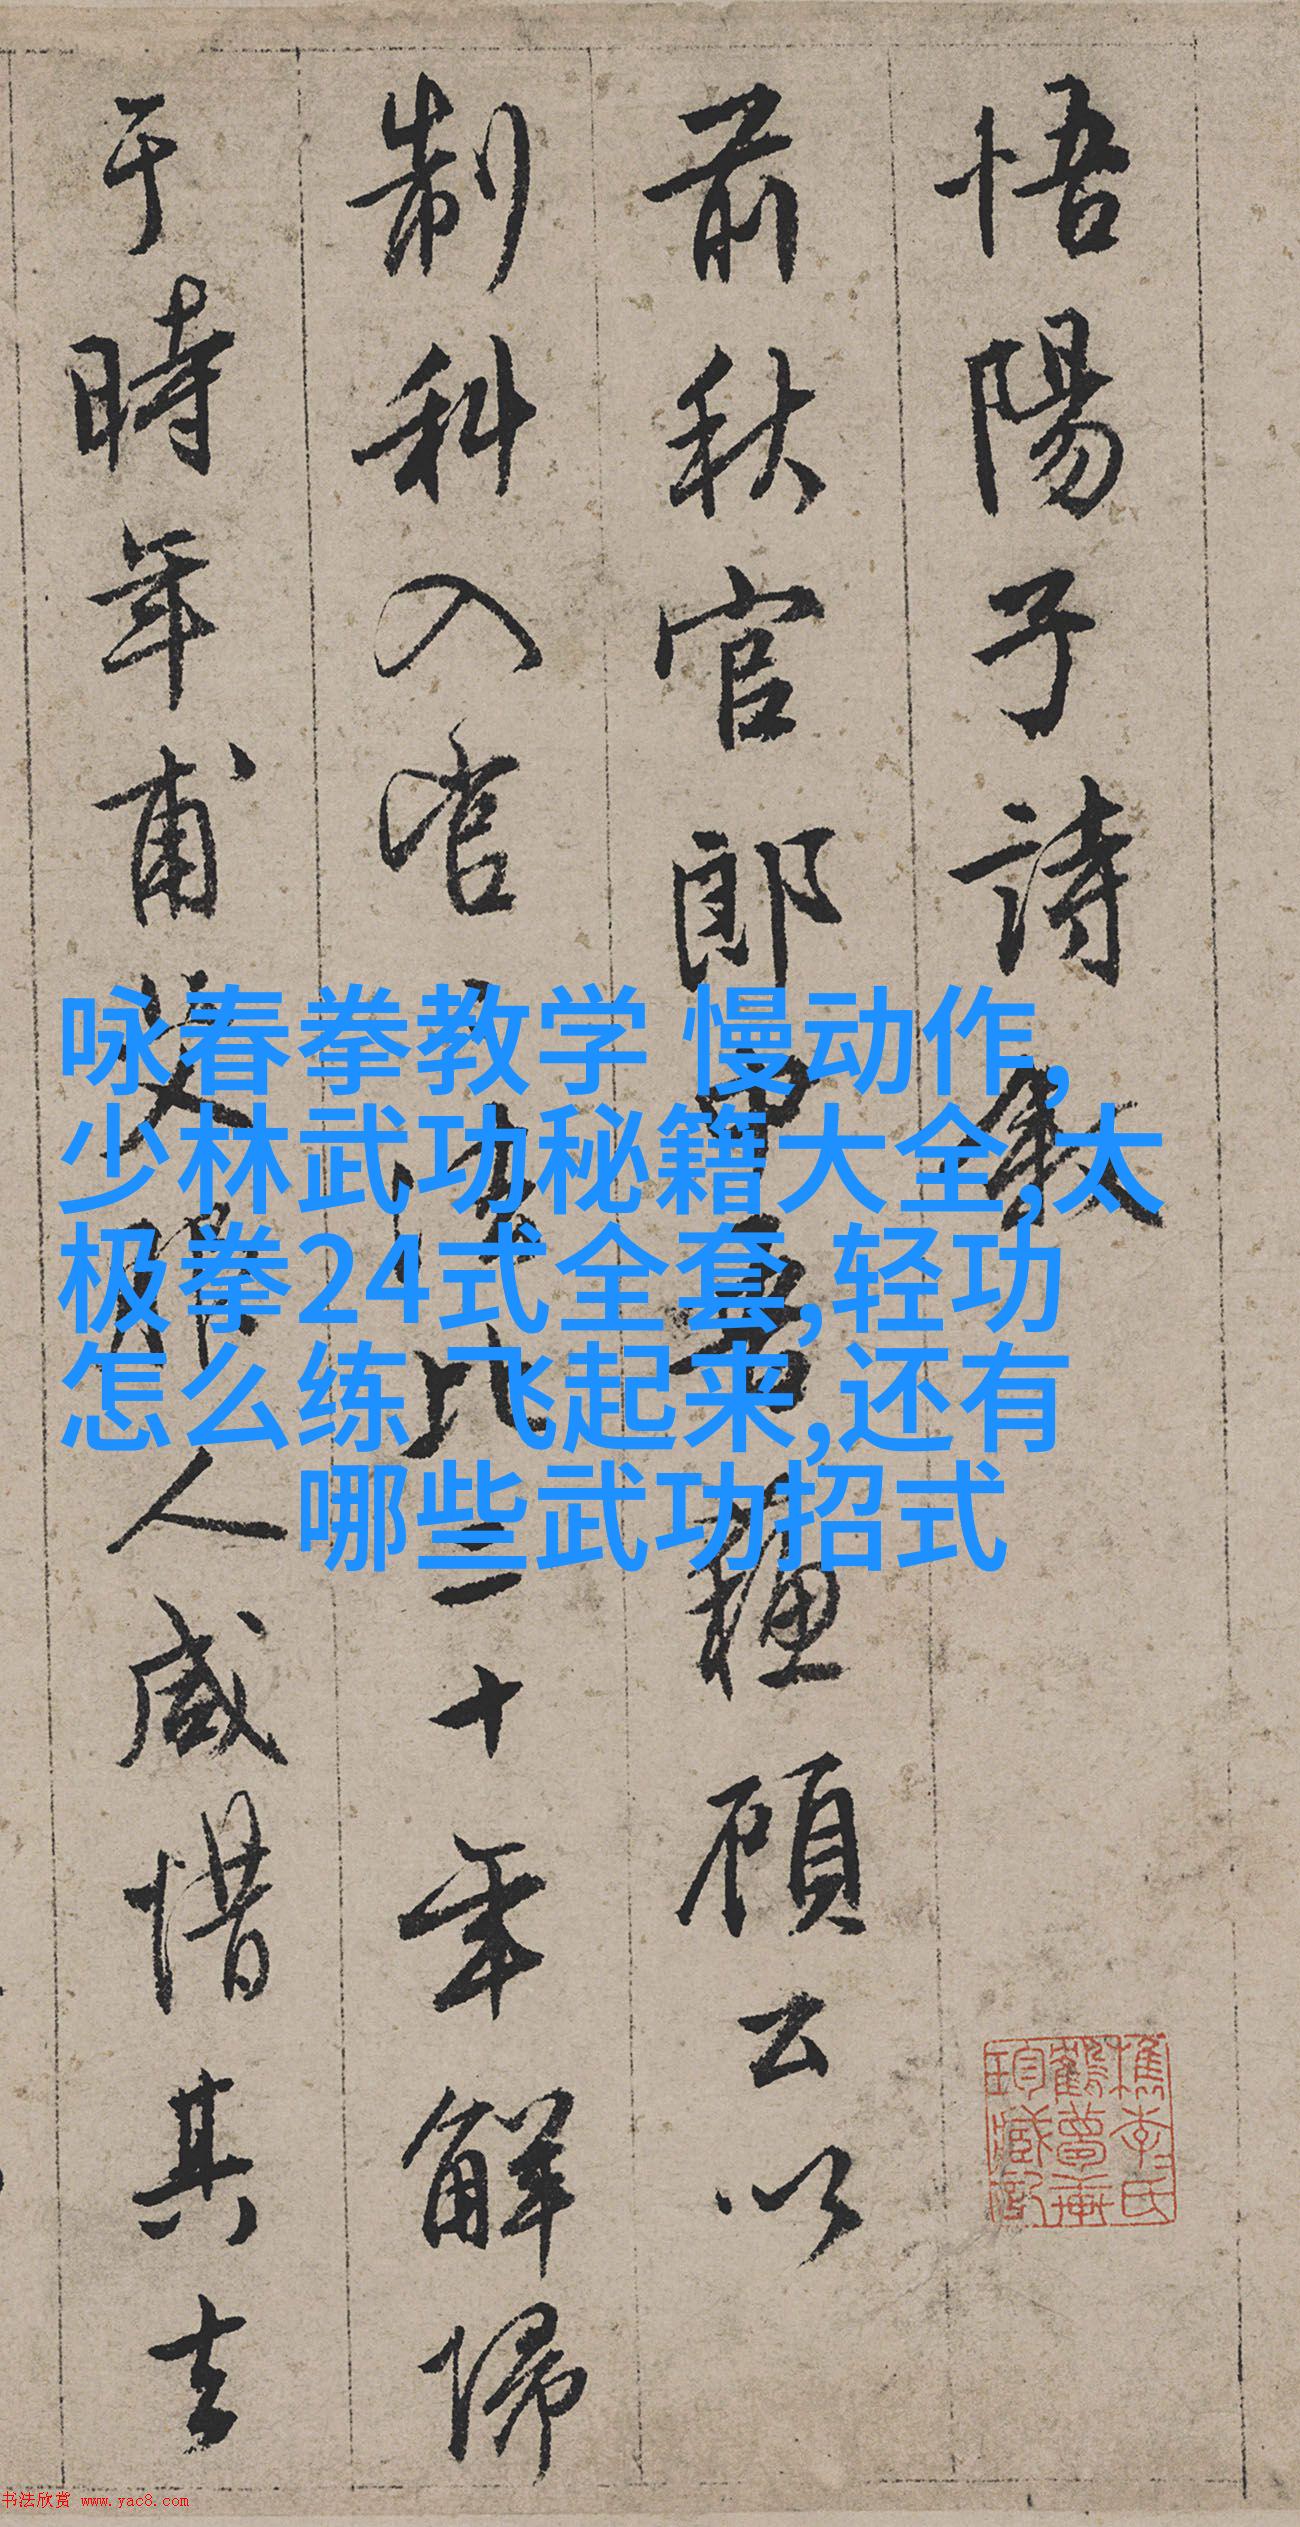 悟陽子詩敘
前秋官郎中吾穜顧公以
制科入官
比二十年解歸
于時年甫
人咸惜其去
咏春拳教学 慢动作,
少林武功秘籍大全,太
极拳24式全套,轻功
怎么练 飞起来,还有
哪些武功招式
书法欣赏 www.yac8.com